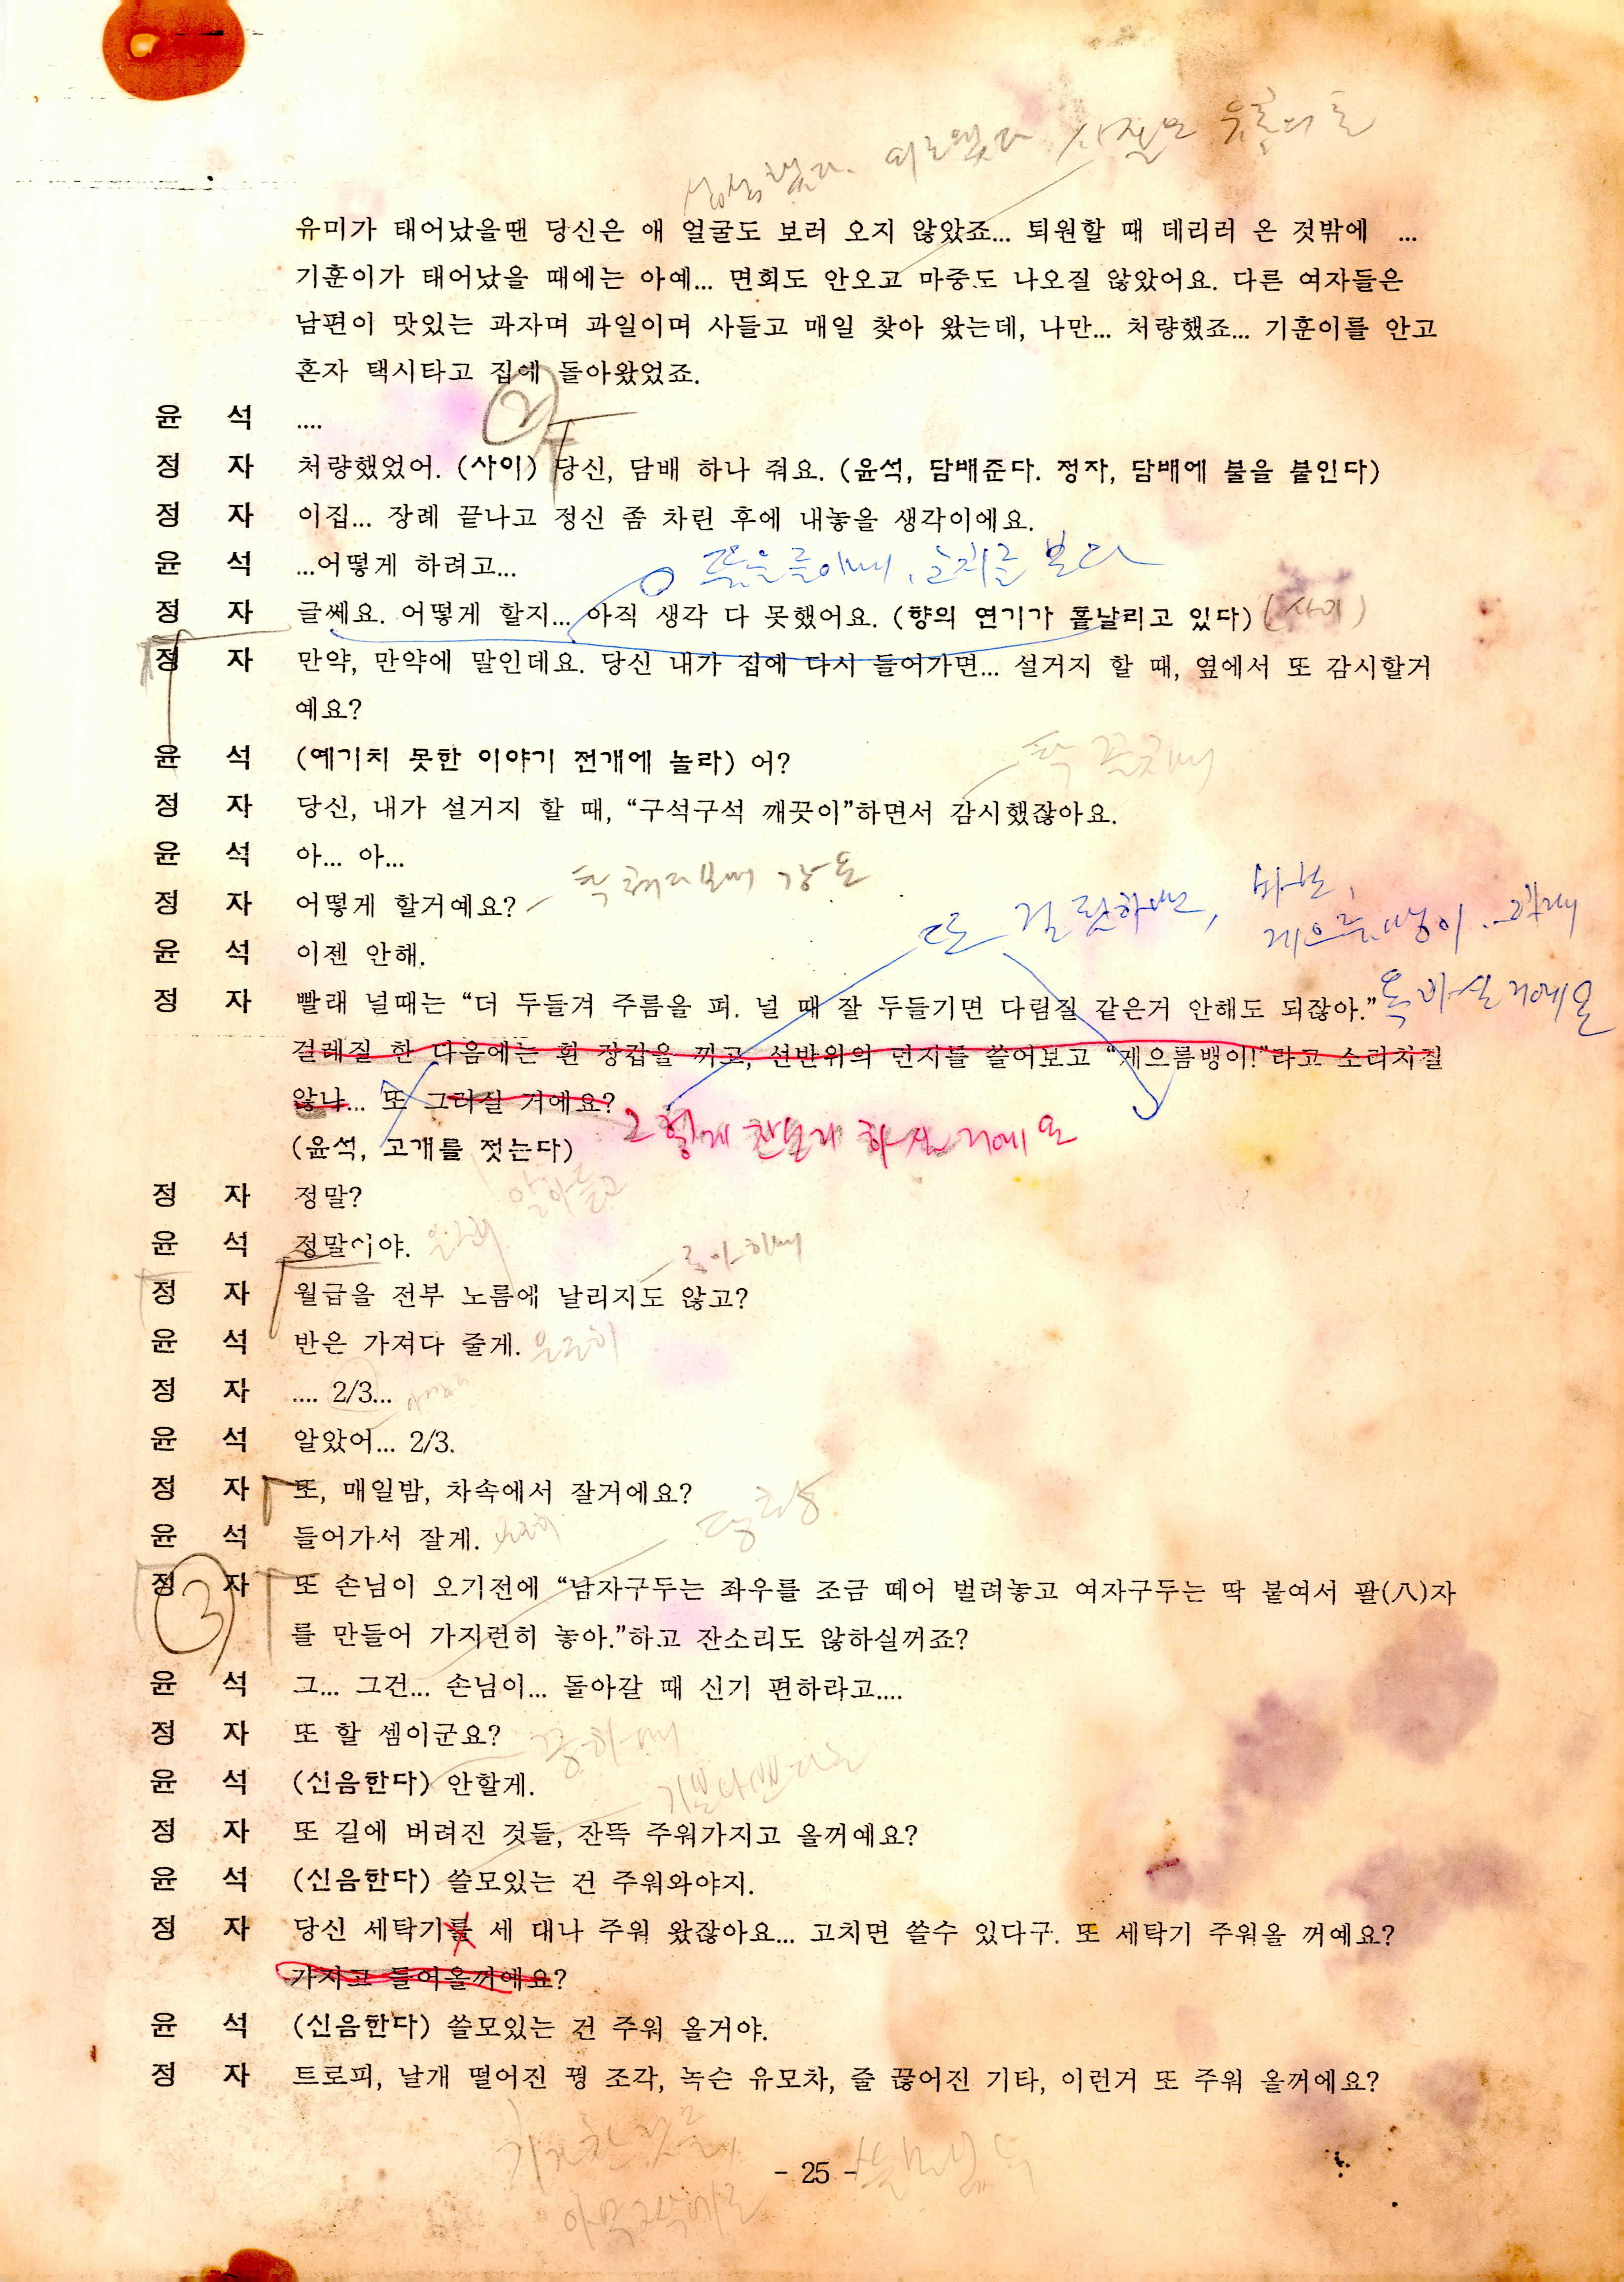 섭섭했다. 외로웠다
유미가 태어났을땐 당신은 애 얼굴도 보러 오지 않았죠... 퇴원할 때 데리러 온 것밖에 ...
기훈이가 태어났을 때에는 아예... 면회도 안오고 마중도 나오질 않았어요. 다른 여자들은
남편이 맛있는 과자며 과일이며 사들고 매일 찾아 왔는데, 나만... 처량했죠... 기훈이를 안고
혼자 택시타고 집에 돌아왔었죠.
②
윤 석 ....
정 자 처량했었어. (사이) 당신, 담배 하나 줘요. (윤석, 담배준다. 정자, 담배에 불을 붙인다)
정 자 이집... 장례 끝나고 정신 좀 차린 후에 내놓을 생각이에요.
윤 석 ...어떻게 하려고... 보다
정 자 글쎄요. 어떻게 할지... 아직 생각 다 못했어요. (향의 연기가 흩날리고 있다) (사이)
정 자 만약, 만약에 말인데요. 당신 내가 집에 다시 들어가면... 설거지 할 때, 옆에서 또 감시할거
예요?
윤 석 (예기치 못한 이야기 전개에 놀라) 어?
정 자 당신, 내가 설거지 할 때, “구석구석 깨끗이”하면서 감시했잖아요.
윤 석 아... 아...
정 자 어떻게 할거예요?
또 바보,
게으름뱅이
윤 석 이젠 안해.
정 자 빨래 널때는 “더 두들겨 주름을 펴. 널 때 잘 두들기면 다림질 같은거 안해도 되잖아.”
걸레질 한 다음에는 흰 장갑을 끼고, 선반위의 먼지를 쓸어보고 “게으름뱅이!”라고 소리치질
않나... 또 그러실 거예요?
그렇게 하실거에요
(윤석, 고개를 젓는다)
알아듣고
정 자 정말?
윤 석 정말이야.
좋아하며
정 자 월급을 전부 노름에 날리지도 않고?
윤 석 반은 가져다 줄게.
정 자 .... 2/3...
윤 석 알았어... 2/3.
정 자 또, 매일밤, 차속에서 잘거에요?
당황
윤 석 들어가서 잘게.
③
정 자 또 손님이 오기전에 “남자구두는 좌우를 조금 떼어 벌려놓고 여자구두는 딱 붙여서 팔(八)자
를 만들어 가지런히 놓아.”하고 잔소리도 않하실꺼죠?
윤 석 그... 그건... 손님이... 돌아갈 때 신기 편하라고....
정 자 또 할 셈이군요?
윤 석 (신음한다) 안할게.
정 자 또 길에 버려진 것들, 잔뜩 주워가지고 올꺼예요?
윤 석 (신음한다) 쓸모있는 건 주워와야지.
정 자 당신 세탁기를 세 대나 주워 왔잖아요... 고치면 쓸수 있다구. 또 세탁기 주워올 꺼예요?
가지고 들어올꺼예요?
윤 석 (신음한다) 쓸모있는 건 주워 올거야.
정 자 트로피, 날개 떨어진 꿩 조각, 녹슨 유모차, 줄 끊어진 기타, 이런거 또 주워 올꺼에요?
- 25 -